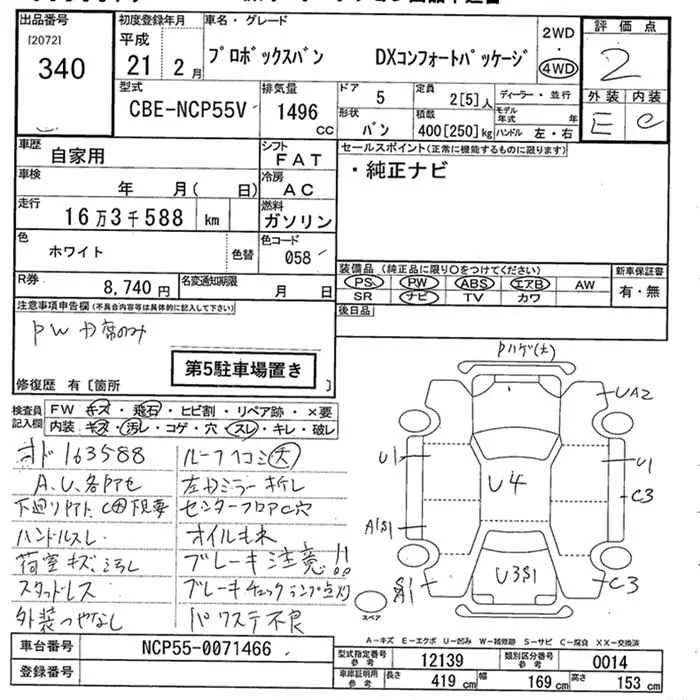 出品番号
[2072]
340
初度登録年月
平成
21 2 月
車名・グレード
プロボックスバン DXコンフォートパッケージ
2WD
・
4WD
評価点
2
外装 内装
E e
型式
CBE-NCP55V
排気量
1496
cc
ドア
5
定員
2[5]人
ディーラー・並行
形状
バン
積載
400[250]kg
モデル年式 年
ハンドル 左・右
車歴
自家用
シフト
FAT
セールスポイント(正常に機能するものに限ります)
・純正ナビ
車検
年 月( 日)
冷房
AC
走行
16万3千588 km
燃料
ガソリン
色
ホワイト
色替
色コード
058
R券
8,740円
名変通知期限
月 日
装備品(純正品に限り○をつけてください)
PS PW ABS エアB AW
SR ナビ TV カワ
新車保証書
有・無
後日品
注意事項申告欄(不具合内容等は具体的に記入して下さい)
PW カ席のみ
第5駐車場置き
修復歴 有〔箇所 〕
検査員記入欄
FW キズ・飛石・ヒビ割・リペア跡・×要
内装 キズ・汚レ・コゲ・穴・スレ・キレ・破レ
オド163588
A.U.各所色
ハンドルスレ
荷室キズ、汚レ
スタッドレス
外装つやなし
ルーフ凹コミ大
左ドミラー折レ
センターフロアC穴
オイルもれ
ブレーキ注意!!
ブレーキチェックランプ点灯
パワステ不良
Pハゲ(大)
UA2
U1
U4
U1
C3
A1S1
U3S1
C3
S1
A1
スペア
A-キズ E-エクボ U-凹み W-補修跡 S-サビ C-腐食 XX-交換済
車台番号
NCP55-0071466
登録番号
型式指定番号
参考
12139
類別区分番号
参考
0014
車庫証明用
参考
長さ 419 cm
幅 169 cm
高さ 153 cm